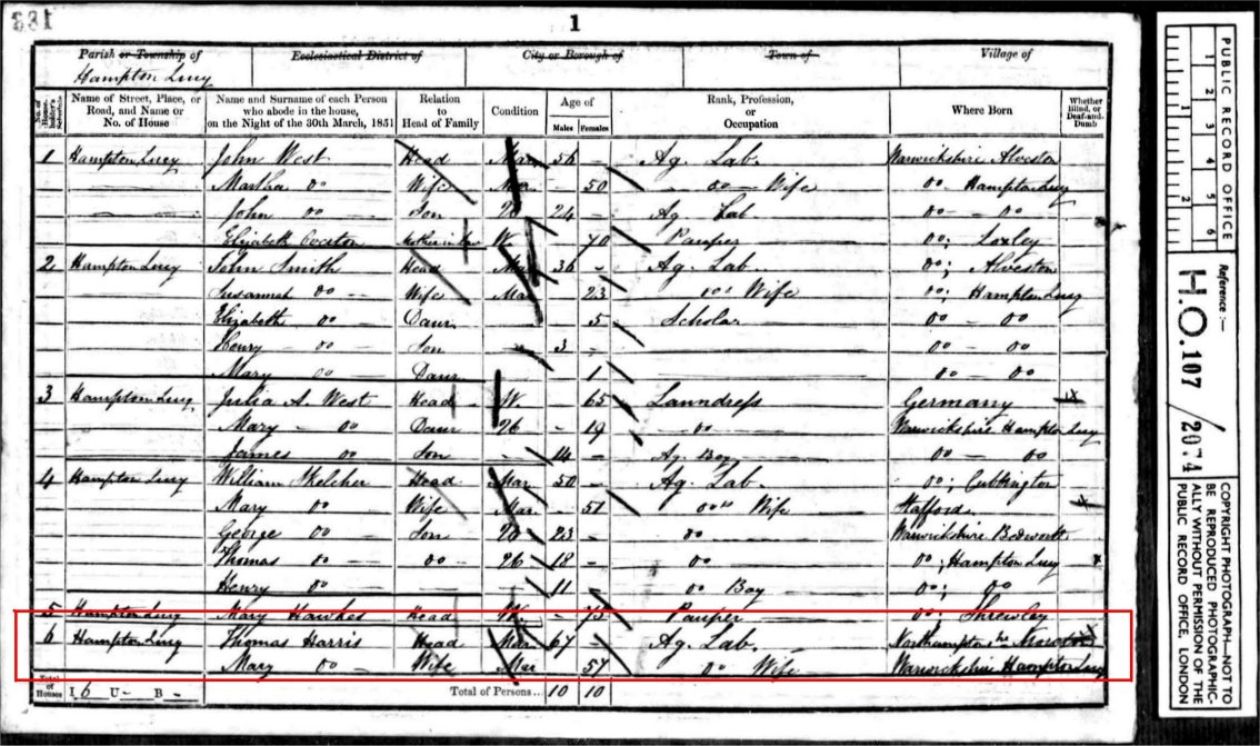 531
1
Parish or Township of Ecclesiastical District of City or Borough of Town of Village of
Hampton Lucy
Name of Street, Place, or Road, and Name or No. of House Name and Surname of each Person who abode in the house, on the Night of the 30th March, 1851 Relation to Head of Family Condition Age of Males Females Rank, Profession, or Occupation Where Born Whether Blind, or Deaf-and-Dumb
1 Hampton Lucy John West Head Mar 56 - Ag. Lab. Warwickshire Alveston
Martha Do Wife Mar 50 Do Wife Do Hampton Lucy
John Do Son 24 - Ag. Lab. Do - Do
Elizabeth Mother in law W. 70 Pauper Do; Loxley
2 Hampton Lucy John Smith Head Mar 36 - Ag. Lab. Do; Alveston
Susannah Do Wife Mar 23 Do Wife Do; Hampton Lucy
Elizabeth Do Daur 5 Scholar Do - Do
Henry Do Son 3 - Do - Do
Mary Do Daur 1 Do - Do
3 Hampton Lucy Julia A. West Head W. 65 Laundress Germany
Mary Do Daur - 19 Do Warwickshire Hampton Lucy
James Do Son 14 - Ag. Boy Do - Do
4 Hampton Lucy William Skelcher Head Mar 50 - Ag. Lab. Do; Cubbington
Mary Do Wife Mar 51 Do Wife Stafford
George Do Son 23 - Do Warwickshire Bedworth
Thomas Do Do 18 - Do Do; Hampton Lucy
Henry Do 11 Do Boy Do; Do
5 Hampton Lucy Mary Hawkes Head W. - 75 Pauper Do; Shrewley
6 Hampton Lucy Thomas Harris Head Mar 67 - Ag. Lab. Northamptonshe
Mary Do Wife Mar 57 Do Wife Warwickshire Hampton Lucy
Total of Houses I 6 U - B - Total of Persons... 10 10
PUBLIC RECORD OFFICE
1 2 3 4 5 6
1 2
Reference :-
H.O. 107 / 2074
COPYRIGHT PHOTOGRAPH—NOT TO
BE REPRODUCED PHOTOGRAPHIC-
ALLY WITHOUT PERMISSION OF THE
PUBLIC RECORD OFFICE, LONDON